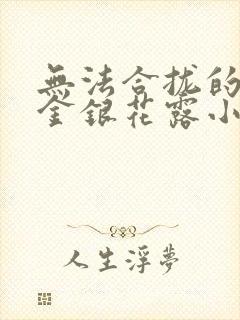 無法合拢的
金銀花露小
人生浮夢